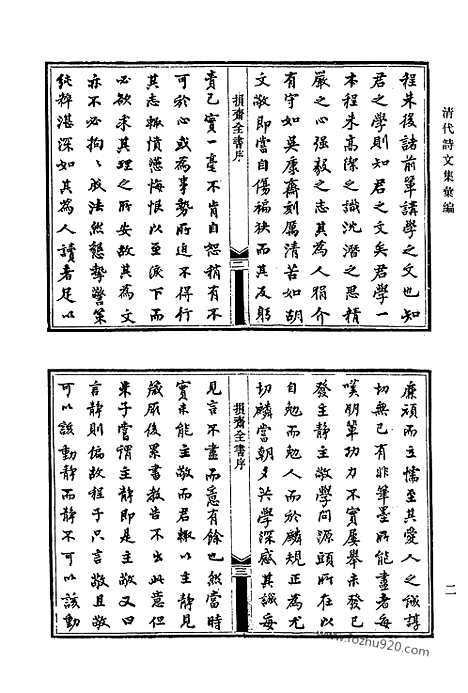 清代詩文集彙編
程朱後諸前軰講學之文也知
君之學則知君之文矣君學一
本程朱高深之識沈潛之思精
嚴之心强毅之志其為人狷介
有守如吳康齋刻厲清苦如胡
文敬即嘗自傷褊狹而其反躬
損齋全書序
二
責己實一毫不肯自恕稍有不
可於心或為事勢所迫不得行
其志輒憤懣悔恨以至淚下而
必欲求其理之所安故其為文
亦不必拘拘成法然懇摯警策
純粹湛深如其為人讀者足以
廉頑而立懦至其愛人之誠諄
切無已有非筆墨所能盡者每
嘆朋軰功力不實屢舉未發已
發主靜主敬學問源頭所在以
自勉而勉人而於麟規正為尤
切麟當朝夕共學深感其誠每
損齋全書序
三
見言不盡而意有餘也然當時
實未能主敬而君輒以主靜見
箴厥後累書教告不出此意但
朱子嘗謂主靜即是主敬又曰
言靜則偏故程子只言敬且敬
可以該動靜而靜不可以該動
二
www.fozhu920.com